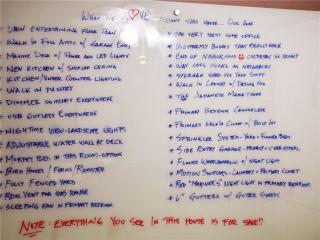 What We LOVE About This Home... Our Home
* Open Entertaining Floor Plan
* Walk In Full Attic w/ Garage Entry
* Master Deck w/ Power and LED Lights
* New Kitchen w/ Shiplap Ceiling
* Kitchen/Under Counter Lighting
* Walk In Pantry
* Dimmer Switches Everywhere
* USB Outlets Everywhere
* Nighttime View-Landscape Lights
* Adjustable Water Wall at Deck
* Murphy Bed in This Room-Option
* Bird House / Feeders
* Fully Fenced Yard
* Real Vent for Gas Range
* Sleeping Fan in Primary Bedroom
* The Very Best Home Office
* Butterfly Bushes That Really Work
* End of Neighborhood
* Way Less Noise as Neighbors
* Storage Shed for Yard Stuff
* Walk In Laundry w/ Drying Rod
* The Japanese Maple Tree
* Primary Bedroom Chandelier
* Primary Walk-In Closet w/
* Sprinkler System - Yard + Flower Beds
* Side Entry Garage
* Flower Wheelbarrow w/ Night Light
* Motion Switches - Laundry + Primary Closet
* Red "Mariner's" Night Light in Primary Bedroom
* 6" Gutters w/ Gutter Guards
Note: Everything You See In This House Is For Sale!!